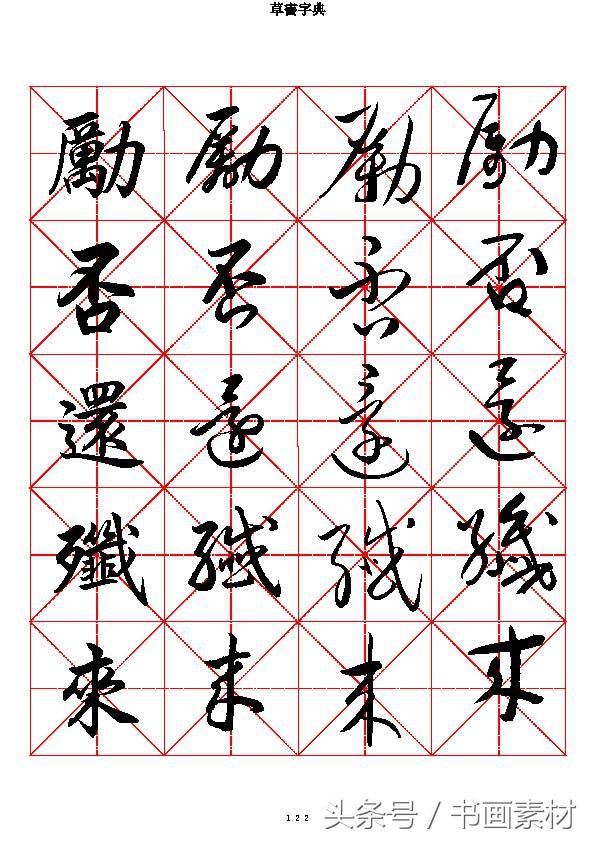 草書字典
勵 勵 勵 勵
否 否 否 否
還 還 還 還
殲 殲 殲 殲
來 來 來 來
122
头条号 / 书画素材